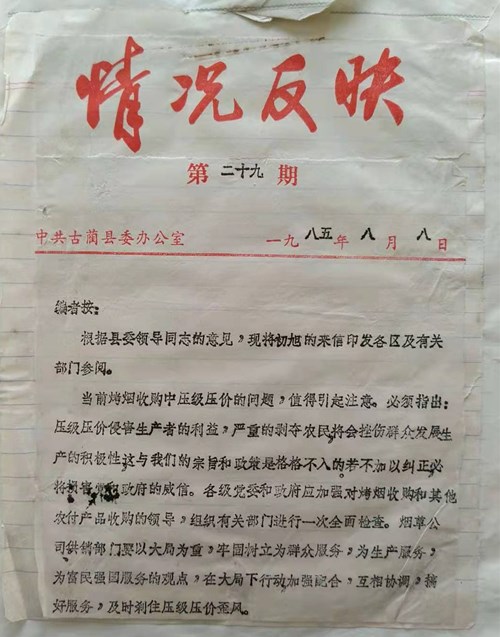 情况反映
第二十九期
中共古蔺县委办公室 一九八五年八月八日
编者按：
根据县委领导同志的意见，现将初旭的来信印发各区及有关
部门参阅。
当前烤烟收购中压级压价的问题，值得引起注意。必须指出：
压级压价侵害生产者的利益，严重的剥夺农民将会挫伤群众发展生
产的积极性这与我们的宗旨和政策是格格不入的若不加以纠正必
将损害党和政府的威信。各级党委和政府应加强对烤烟收购和其他
农付产品收购的领导，组织有关部门进行一次全面检查。烟草公
司供销部门要以大局为重，牢固树立为群众服务，为生产服务，
为富民强国服务的观点，在大局下行动加强配合，互相协调，搞
好服务，及时刹住压级压价歪风。